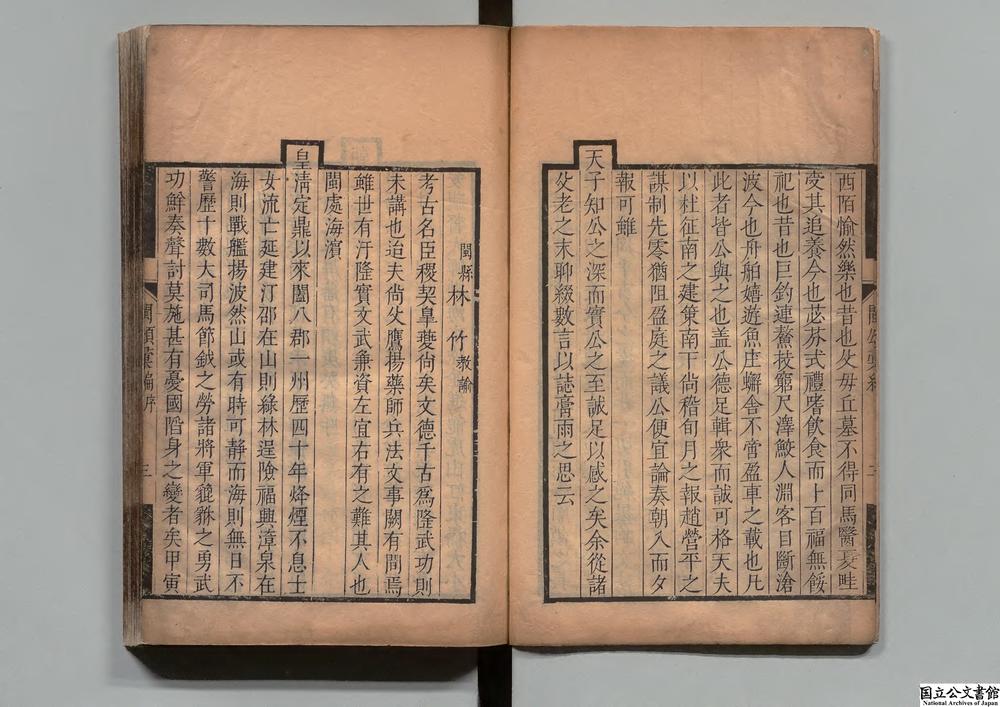 西陌愉然樂也昔也父母丘墓不得同馬醫夏畦
受其追養今也苾芬式禮嗜飲食而卜百福無餒
祀也昔也巨釣連鰲技窮尺澤鮫人淵客目斷滄
波今也舟舶嬉遊魚庄蠏舍不啻盈車之載也凡
此者皆公與之也盖公德足輯衆而誠可格天夫
以杜征南之建策南下尙稽旬月之報趙營平之
謀制先零猶阻盈庭之議公便宜論奏朝入而夕
報可雖
天子知公之深而實公之至誠足以感之矣余從諸
父老之末聊綴數言以誌膏雨之思云
閩頌彙編
閩縣 林 竹 教諭
考古名臣稷契臯夔尙矣文德千古爲隆武功則
未講也迨夫尙父鷹揚藥師兵法文事闕有間焉
雖世有汙隆實文武兼資左宜右有之難其人也
閩處海濱
皇淸定鼎以來閩八郡一州歷四十年烽煙不息士
女流亡延建汀邵在山則綠林逞險福興漳泉在
海則戰艦揚波然山或有時可靜而海則無日不
警歷十數大司馬節鉞之勞諸將軍貔貅之勇武
功鮮奏聲討莫施甚有憂國陷身之變者矣甲寅
閩頌彙編 序 三
国立公文書館
National Archives of Japan